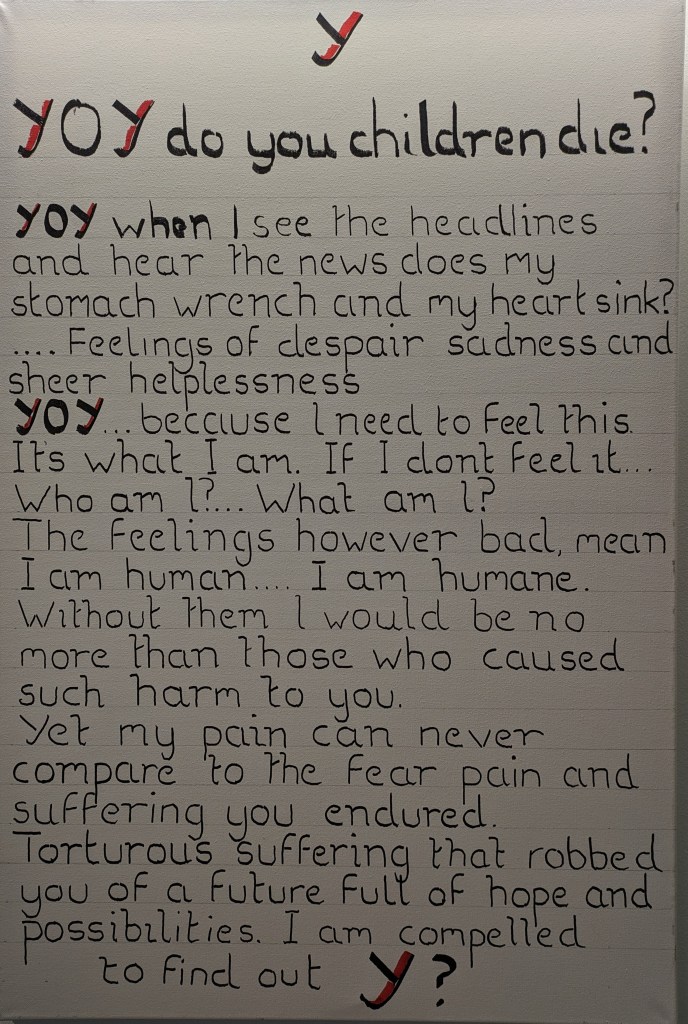 y
YOY do you children die?
YOY when I see the headlines
and hear the news does my
stomach wrench and my heart sink?
.... Feelings of despair sadness and
sheer helplessness
YOY... because I need to feel this.
It's what I am. If I dont feel it...
Who am I?... What am I?
The feelings however bad, mean
I am human.... I am humane.
Without them I would be no
more than those who caused
such harm to you.
Yet my pain can never
compare to the fear pain and
suffering you endured.
Torturous suffering that robbed
you of a future full of hope and
possibilities. I am compelled
to find out y?